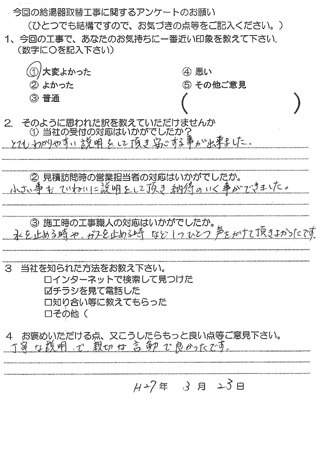 今回の給湯器取替工事に関するアンケートのお願い
(ひとつでも結構ですので、お気づきの点等をご記入ください。)
1、今回の工事で、あなたのお気持ちに一番近い印象を教えて下さい.
(数字に○を記入下さい)
①大変よかった ④悪い
②よかった ⑤その他ご意見
③普通 ( )
2. そのように思われた訳を教えていただけませんか
①当社の受付の対応はいかがでしたか?
とてもわかりやすい説明をして頂き安心する事が出来ました.
②見積訪問時の営業担当者の対応はいかがでしたか.
小さい事もていねいに説明をして頂き納得のいく事ができました。
③施工時の工事職人の対応はいかがでしたか.
水を止める時や、ガスを止める時など1つひとつ声をかけて頂きよかったです
3 当社を知られた方法をお教え下さい。
□インターネットで検索して見つけた
☑チラシを見て電話した
□知り合い等に教えてもらった
□その他(
4 お褒めいただける点、又こうしたらもっと良い点等ご意見下さい。
丁寧な説明で親切な言動で良かったです。
H27年 3月 23日